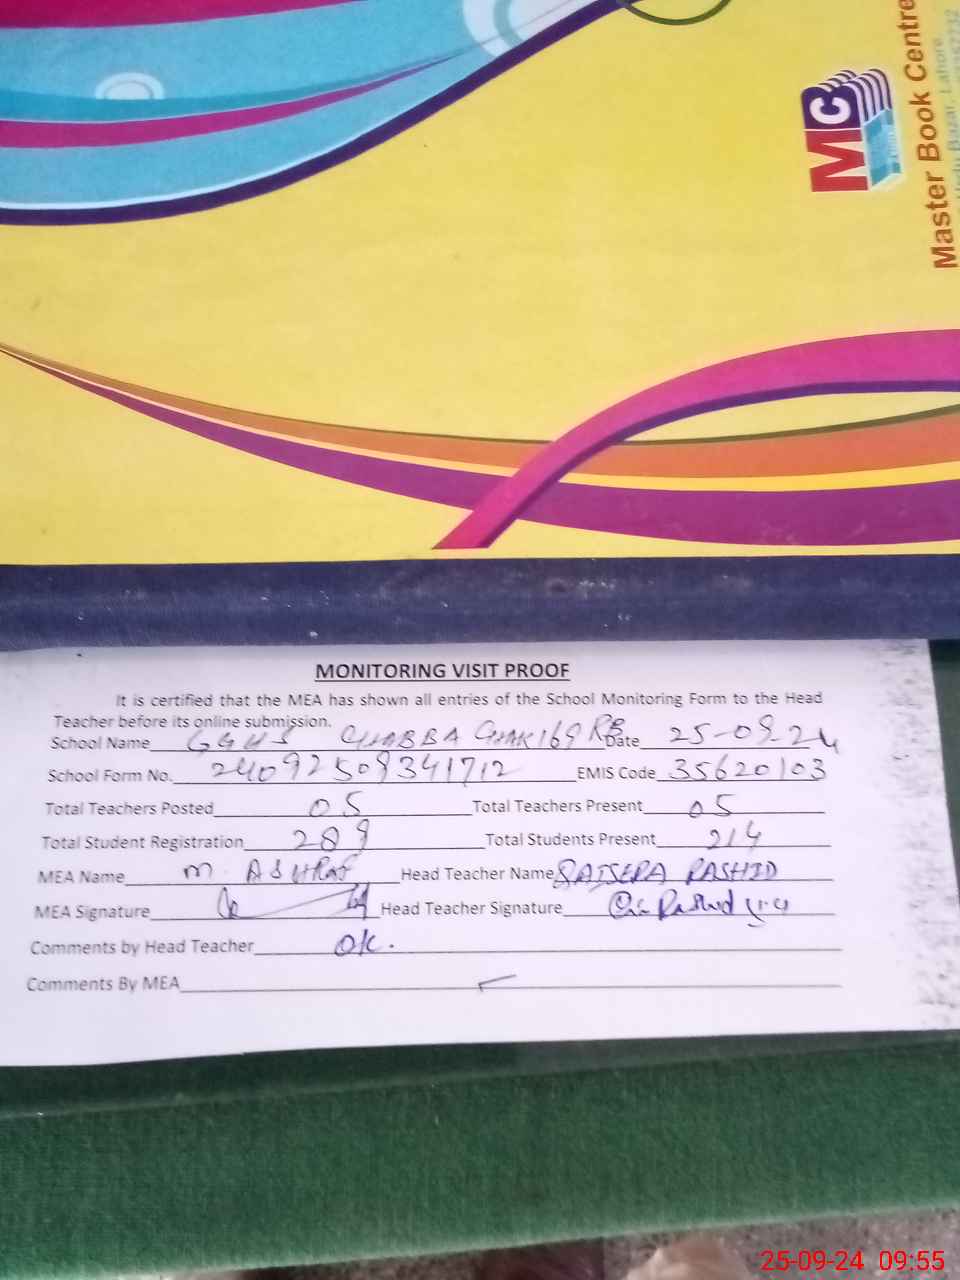 MC
Master Book Centre
Urdu Bazar, Lahore
MONITORING VISIT PROOF
It is certified that the MEA has shown all entries of the School Monitoring Form to the Head
Teacher before its online submission.
School Name GGHS CHABBA CHAK 169 RB Date 25-09-24
School Form No. 24092509341712 EMIS Code 35620103
Total Teachers Posted 05 Total Teachers Present 05
Total Student Registration 289 Total Students Present 214
MEA Name M. ASHRAF Head Teacher Name RASHID
MEA Signature Head Teacher Signature Rashid
Comments by Head Teacher OK.
Comments By MEA
25-09-24 09:55